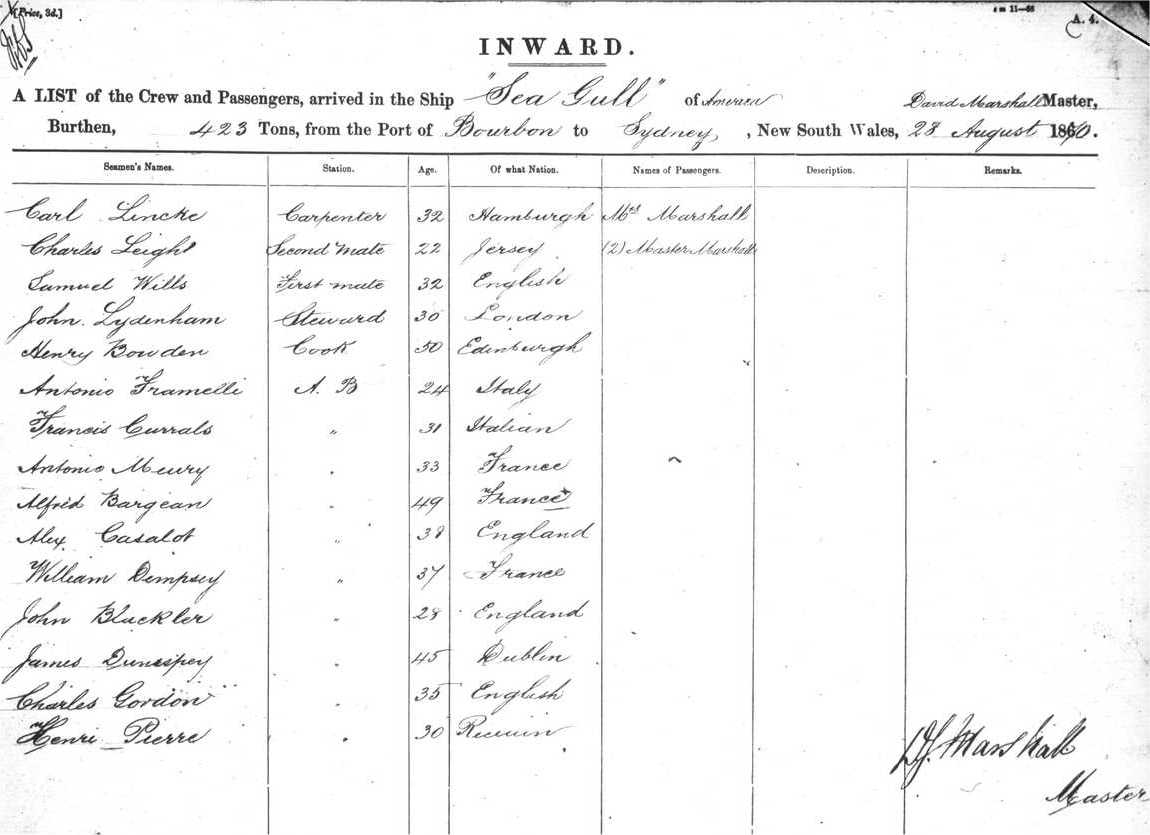 [Price, 3d.]
A. 4.
INWARD.
A LIST of the Crew and Passengers, arrived in the Ship "Sea Gull" of America David Marshall Master,
Burthen, 423 Tons, from the Port of Bourbon to Sydney, , New South Wales, 28 August 1870.
Seamen's Names. Station. Age. Of what Nation. Names of Passengers. Description. Remarks.
Carl Lincke Carpenter 32 Hamburgh Mrs Marshall
Charles Leight Second Mate 22 Jersey (2) Master Marshall
Samuel Wills First mate 32 English
John. Lydenham Steward 30 London
Henry Bowden Cook 50 Edinburgh
Antonio Framelli A. B 24 Italy
Francis Currals " 31 Italian
Antonio Meury 33 France
Alfred Bargean 49 France
Alex Casalot " 38 England
William Dempsey " 37 France
John Blackler " 28 England
James 45 Dublin
Charles Gordon 35 English
Henri Pierre 30
D J Marshall
Master